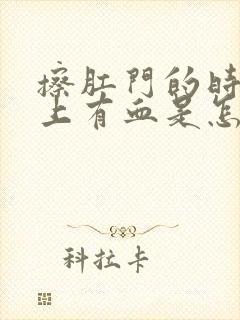 擦肛門的時
上有血是怎
科拉卡